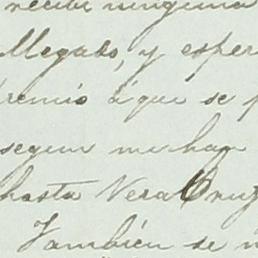 recibí ninguna
llegado, y esper
remio á que se p
segun me han
hasta Vera Cruz
También se